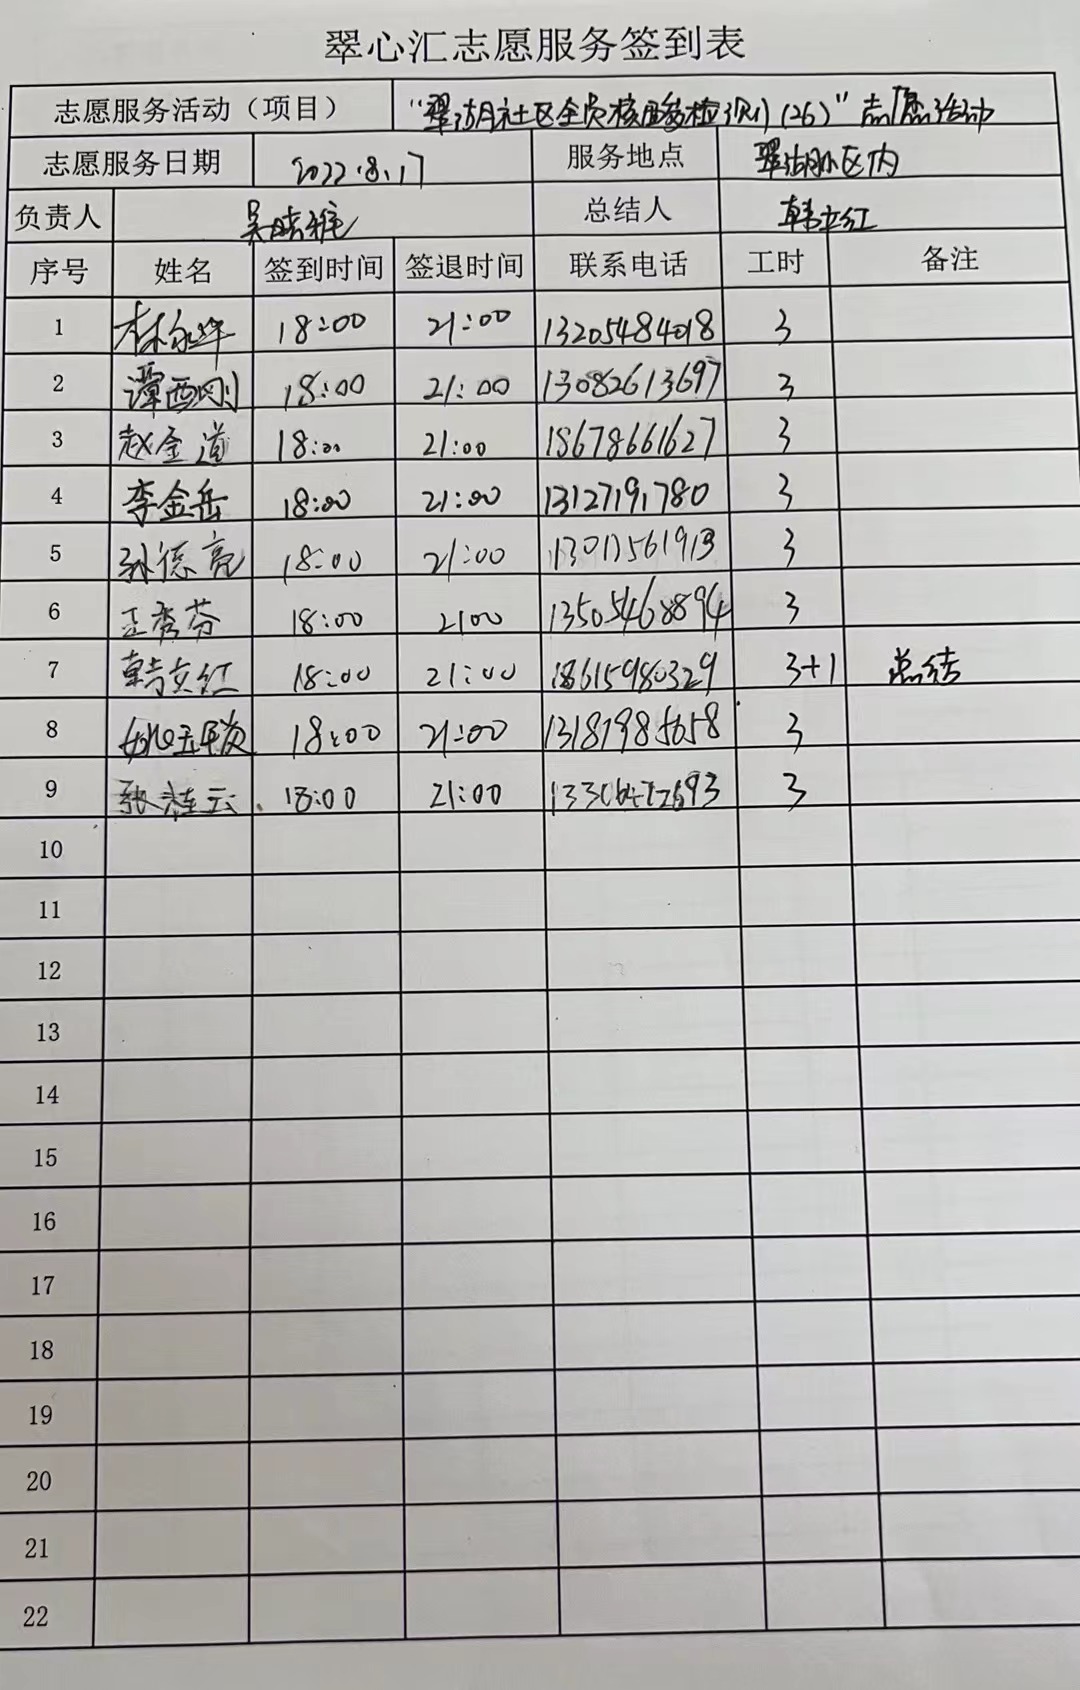 翠心汇志愿服务签到表
志愿服务活动（项目） “翠湖社区全员核酸检测（26）”志愿活动
志愿服务日期 2022.8.17 服务地点 翠湖小区内
负责人 吴 总结人 韩文红
序号 姓名 签到时间 签退时间 联系电话 工时 备注
1 林永华 18:00 21:00 13205484018 3
2 谭西刚 18:00 21:00 13082613697 3
3 赵金道 18:00 21:00 18678661627 3
4 李金岳 18:00 21:00 13127191780 3
5 孙德亮 18:00 21:00 3
6 王秀芬 18:00 2100 13505468894 3
7 韩文红 18:00 21:00 18615980329 3+1 总结
8 18:00 21:00 13181985658 3
9 张桂云 18:00 21:00 3
10
11
12
13
14
15
16
17
18
19
20
21
22